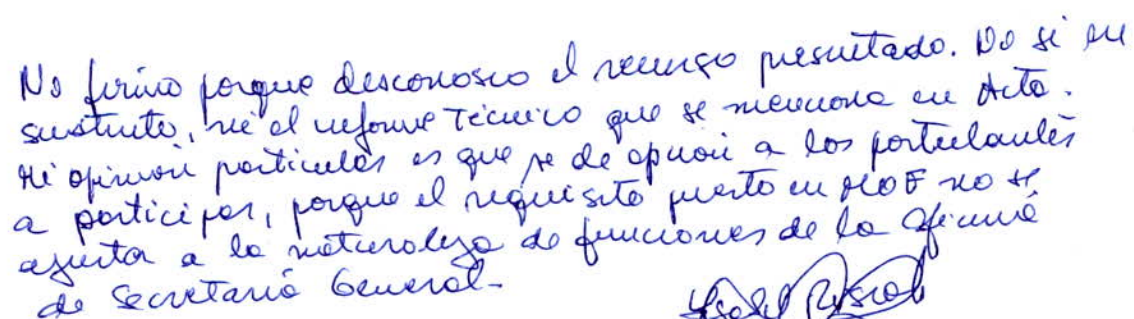 No firmo porque desconosco el recurso presentado. No sé su
sustento, ni el informe Técnico que se menciona en Acta.
Mi opinión particular es que se de opción a los postulantes
a participar, porque el requisito puesto en MOF no se
ajusta a la naturaleza de funciones de la Oficina
de Secretaría General.